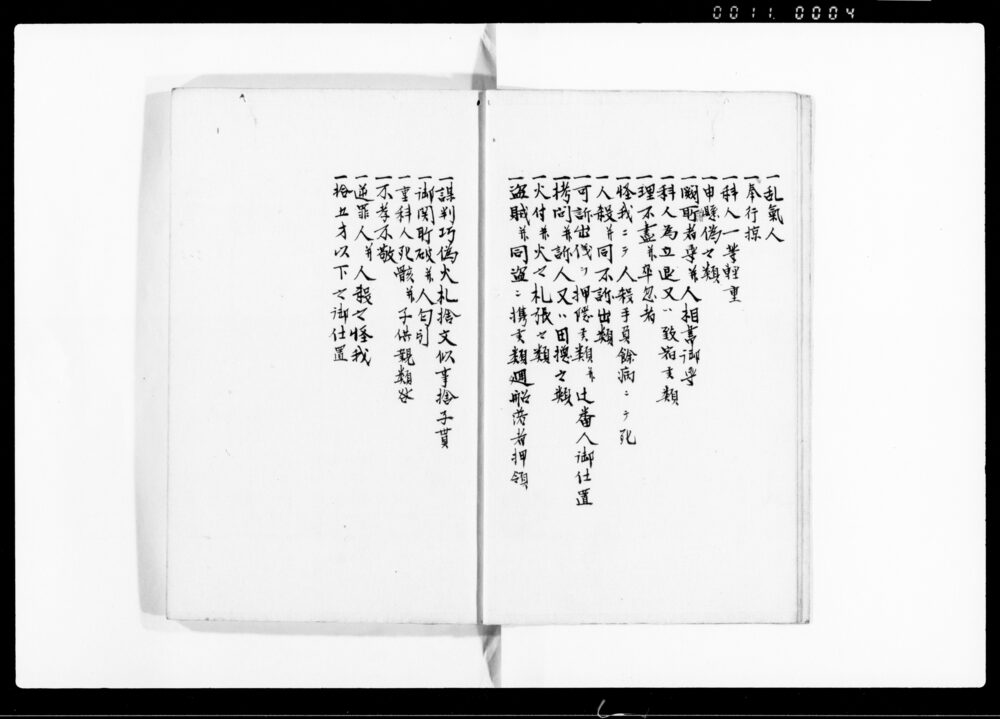 0011 0004
一乱氣人
一奉行掠
一科人一等軽重
一申懸偽之類
一闕所者等并人相書御尋
一科人為立退又ハ致宿夫類
一理不盡并卒忽者
一怪我ニテ人殺手負餘病ニテ死
一人殺并同不訴出類
一可訴出儀ヲ押隠夫類并辻番人御仕置
一拷問并訴人又ハ田携之類
一火付并火之札張之類
一盗賊并同盗ニ携夫類廻船荷者押領
一謀判巧偽火札捨文似事捨子貰
一御関所破并人勾引
一重科人死骸并子供親類
一不孝不敬
一逆罪人并人殺之怪我
一拾五才以下之御仕置